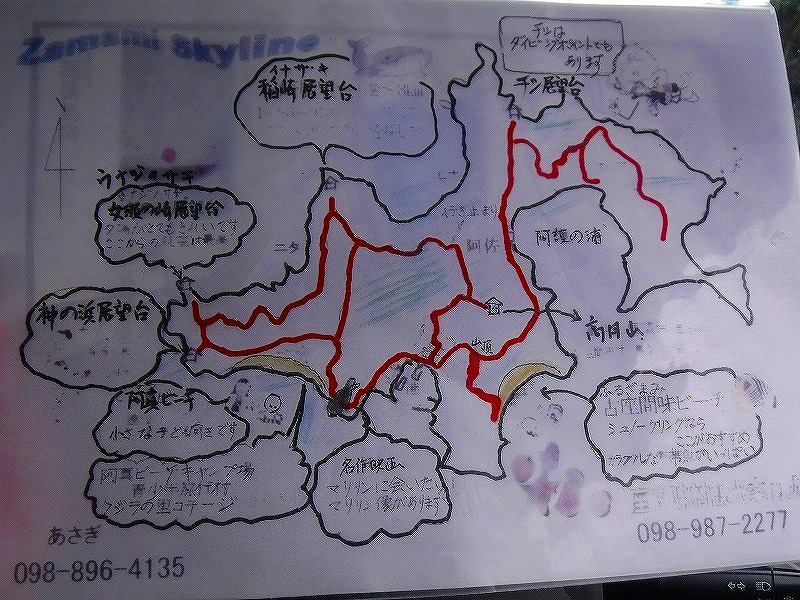 Zamami Skyline
チシは
ダイビングポイントでも
あります
チシ展望台
イナザキ
稲崎展望台
女瀬の崎展望台
ここからの
神の浜展望台
ニタ
行き止まり
阿佐
阿護の浦
高月山
山頂
阿真ビーチ
小さな子ども向きです
阿真ビーチキャンプ場
青少年旅行村
クジラの里コテージ
名作映画へ
マリリンに会いたい
マリリン像があります
古座間味ビーチ
シュノーケリングなら
ここがおすすめ
カラフルな
あさぎ
098-896-4135
098-987-2277